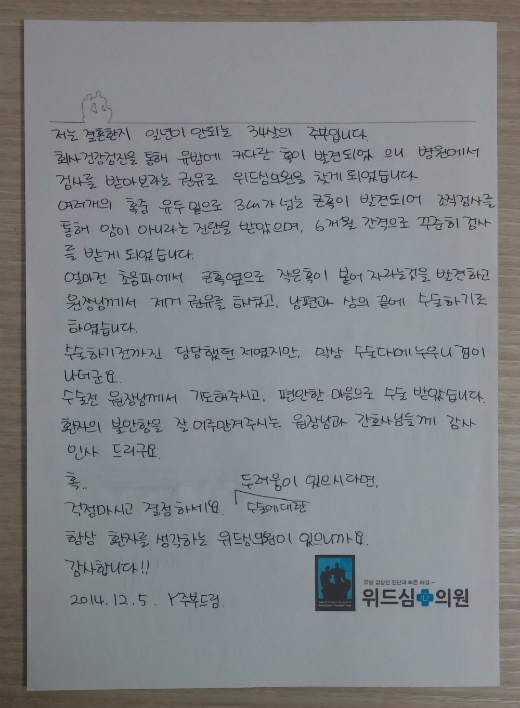 저는 결혼한지 일년이 안되는 34살의 주부입니다.
회사건강검진을 통해 유방에 커다란 혹이 발견되었 으니 병원에서
검사를 받아보라는 권유로 위드심의원을 찾게 되었습니다.
여러개의 혹중 유두 밑으로 3cm가 넘는 큰혹이 발견되어 조직검사를
통해 암이 아니라는 진단을 받았으며, 6개월 간격으로 꾸준히 검사
를 받게 되었습니다.
얼마전 초음파에서 큰혹옆으로 작은혹이 붙어 자라는것을 발견하고
원장님께서 제거 권유를 하셨고, 남편과 상의 끝에 수술하기로
하였습니다.
수술하기전까진 당당했던 저였지만, 막상 수술대에 누우니 겁이
나더군요.
수술전 원장님께서 기도해주시고, 편안한 마음으로 수술 받았습니다.
환자의 불안함을 잘 어루만져주시는 원장님과 간호사님들께 감사
인사 드리구요.
혹.. 두려움이 있으시다면,
걱정마시고 결정하세요. 수술에 대한
항상 환자를 생각하는 위드심의원이 있으니까요.
감사합니다!!
2014.12.5. Y주부드림.
위드심의원